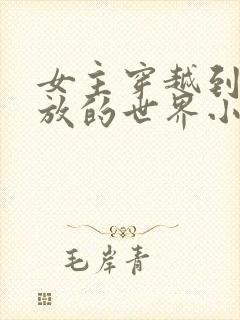 女主穿越到
放的世界小
毛岸青